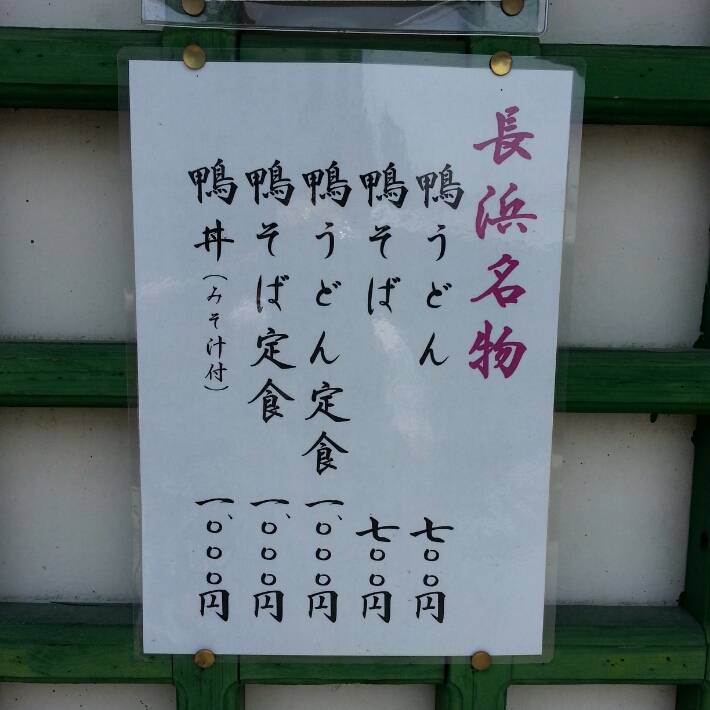 長浜名物
鴨うどん 七〇〇円
鴨そば 七〇〇円
鴨うどん定食 一、〇〇〇円
鴨そば定食 一、〇〇〇円
鴨丼(みそ汁付) 一、〇〇〇円